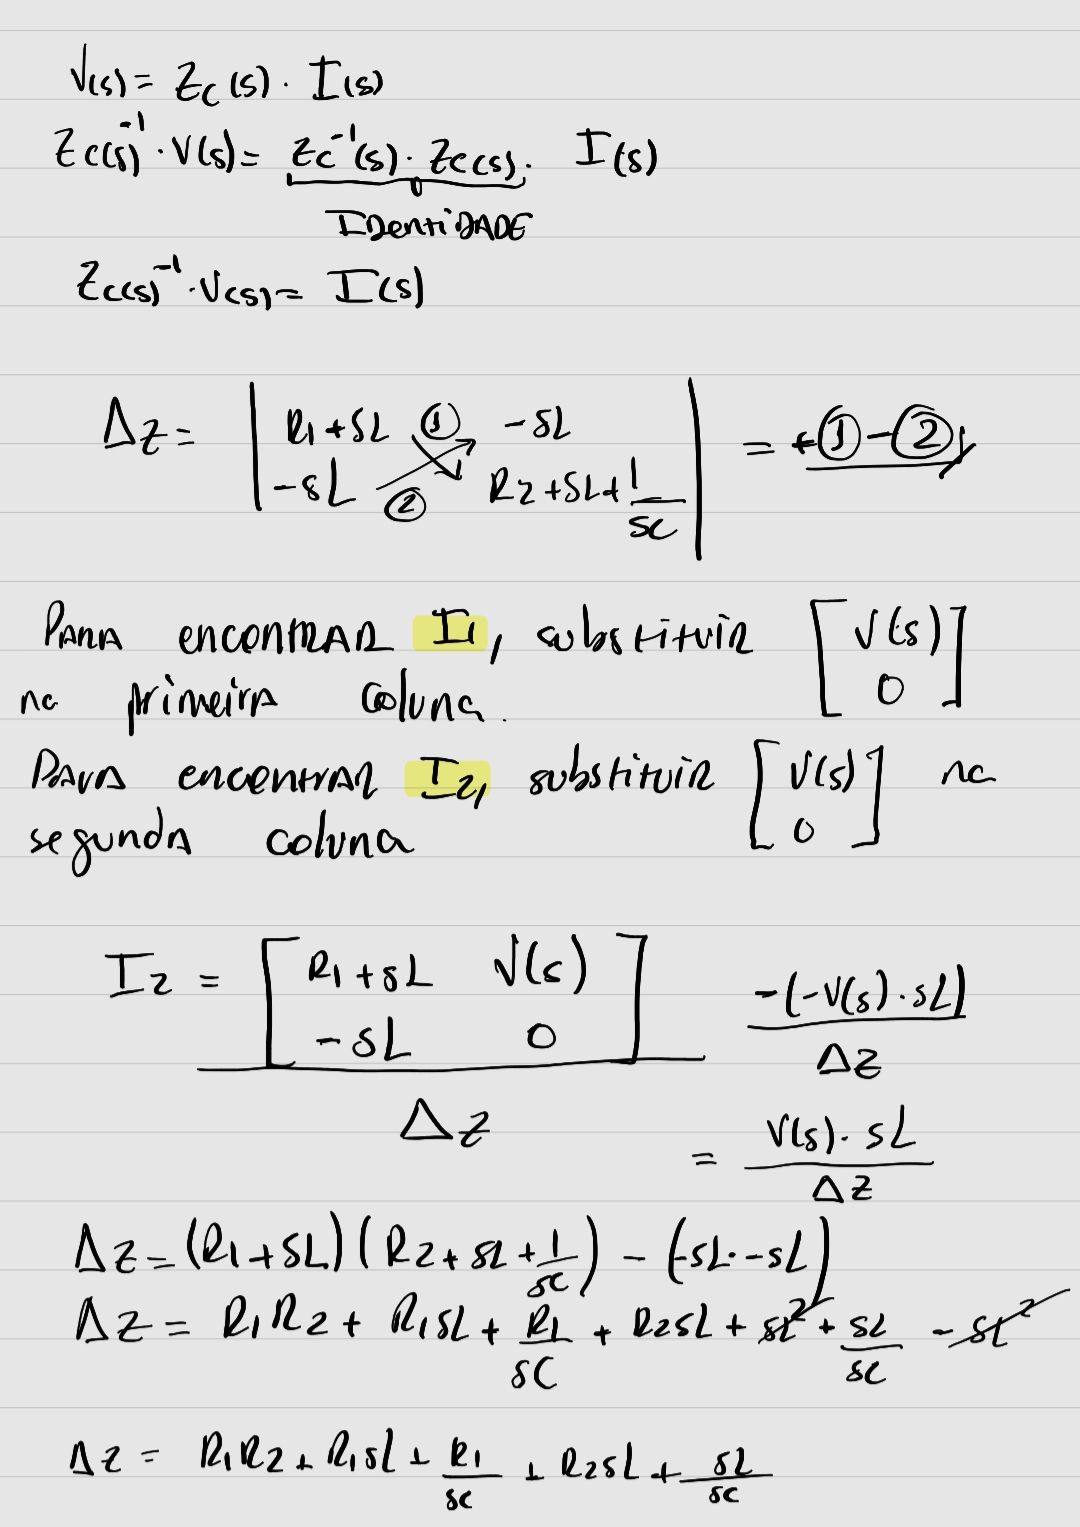 V(s) = Zc(s) · I(s)
Zc(s)⁻¹ · V(s) = Zc⁻¹(s) · Zc(s) · I(s)
IDentiDADE
Zc(s)⁻¹ · V(s) = I(s)
ΔZ = | R1+SL ① -sL | = +① - ②
| -sL ② R2+SL+1/sC |
PARA encontRAR I1, substituir [V(s)
na primeira coluna. 0]
PARA encontrar I2, substituir [V(s) na
segunda coluna 0]
I2 = [R1+sL V(s) -(-V(s)·sL)
-sL 0] ΔZ
ΔZ = V(s)·sL
ΔZ
ΔZ = (R1+SL)(R2+sL+1/sC) - (-sL·-sL)
ΔZ = R1R2 + R1sL + R1/sC + R2sL + sL² + sL/sC - sL²
ΔZ = R1R2 + R1sL + R1/sC + R2sL + sL/sC